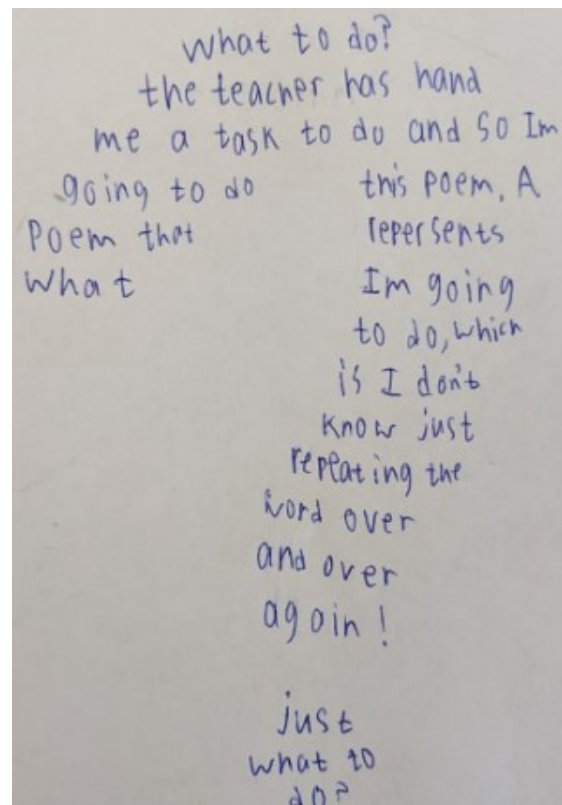 what to do?
the teacher has hand
me a task to do and so Im
going to do this poem. A
Poem that repersents
what Im going
to do, which
is I don't
know just
repeating the
word over
and over
again!
just
what to
do?